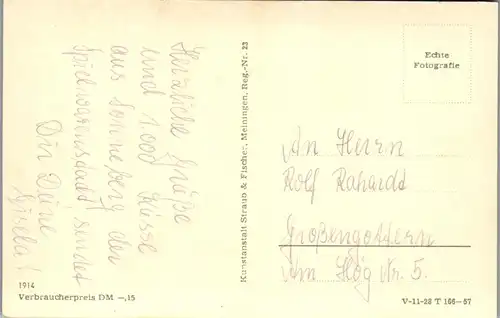 Herzliche Grüße
und 1000 Küsse
aus Sonneberg der
Spielwarenstadt, sendet
Dir Deine
Gisela!
1914
Verbraucherpreis DM —,15
Kunstanstalt Straub & Fischer, Meiningen, Reg.-Nr. 23
Echte
Fotografie
An Herrn
Rolf Rahardt
Großengottern
Am Hög Nr. 5.
V-11-28 T 166-57